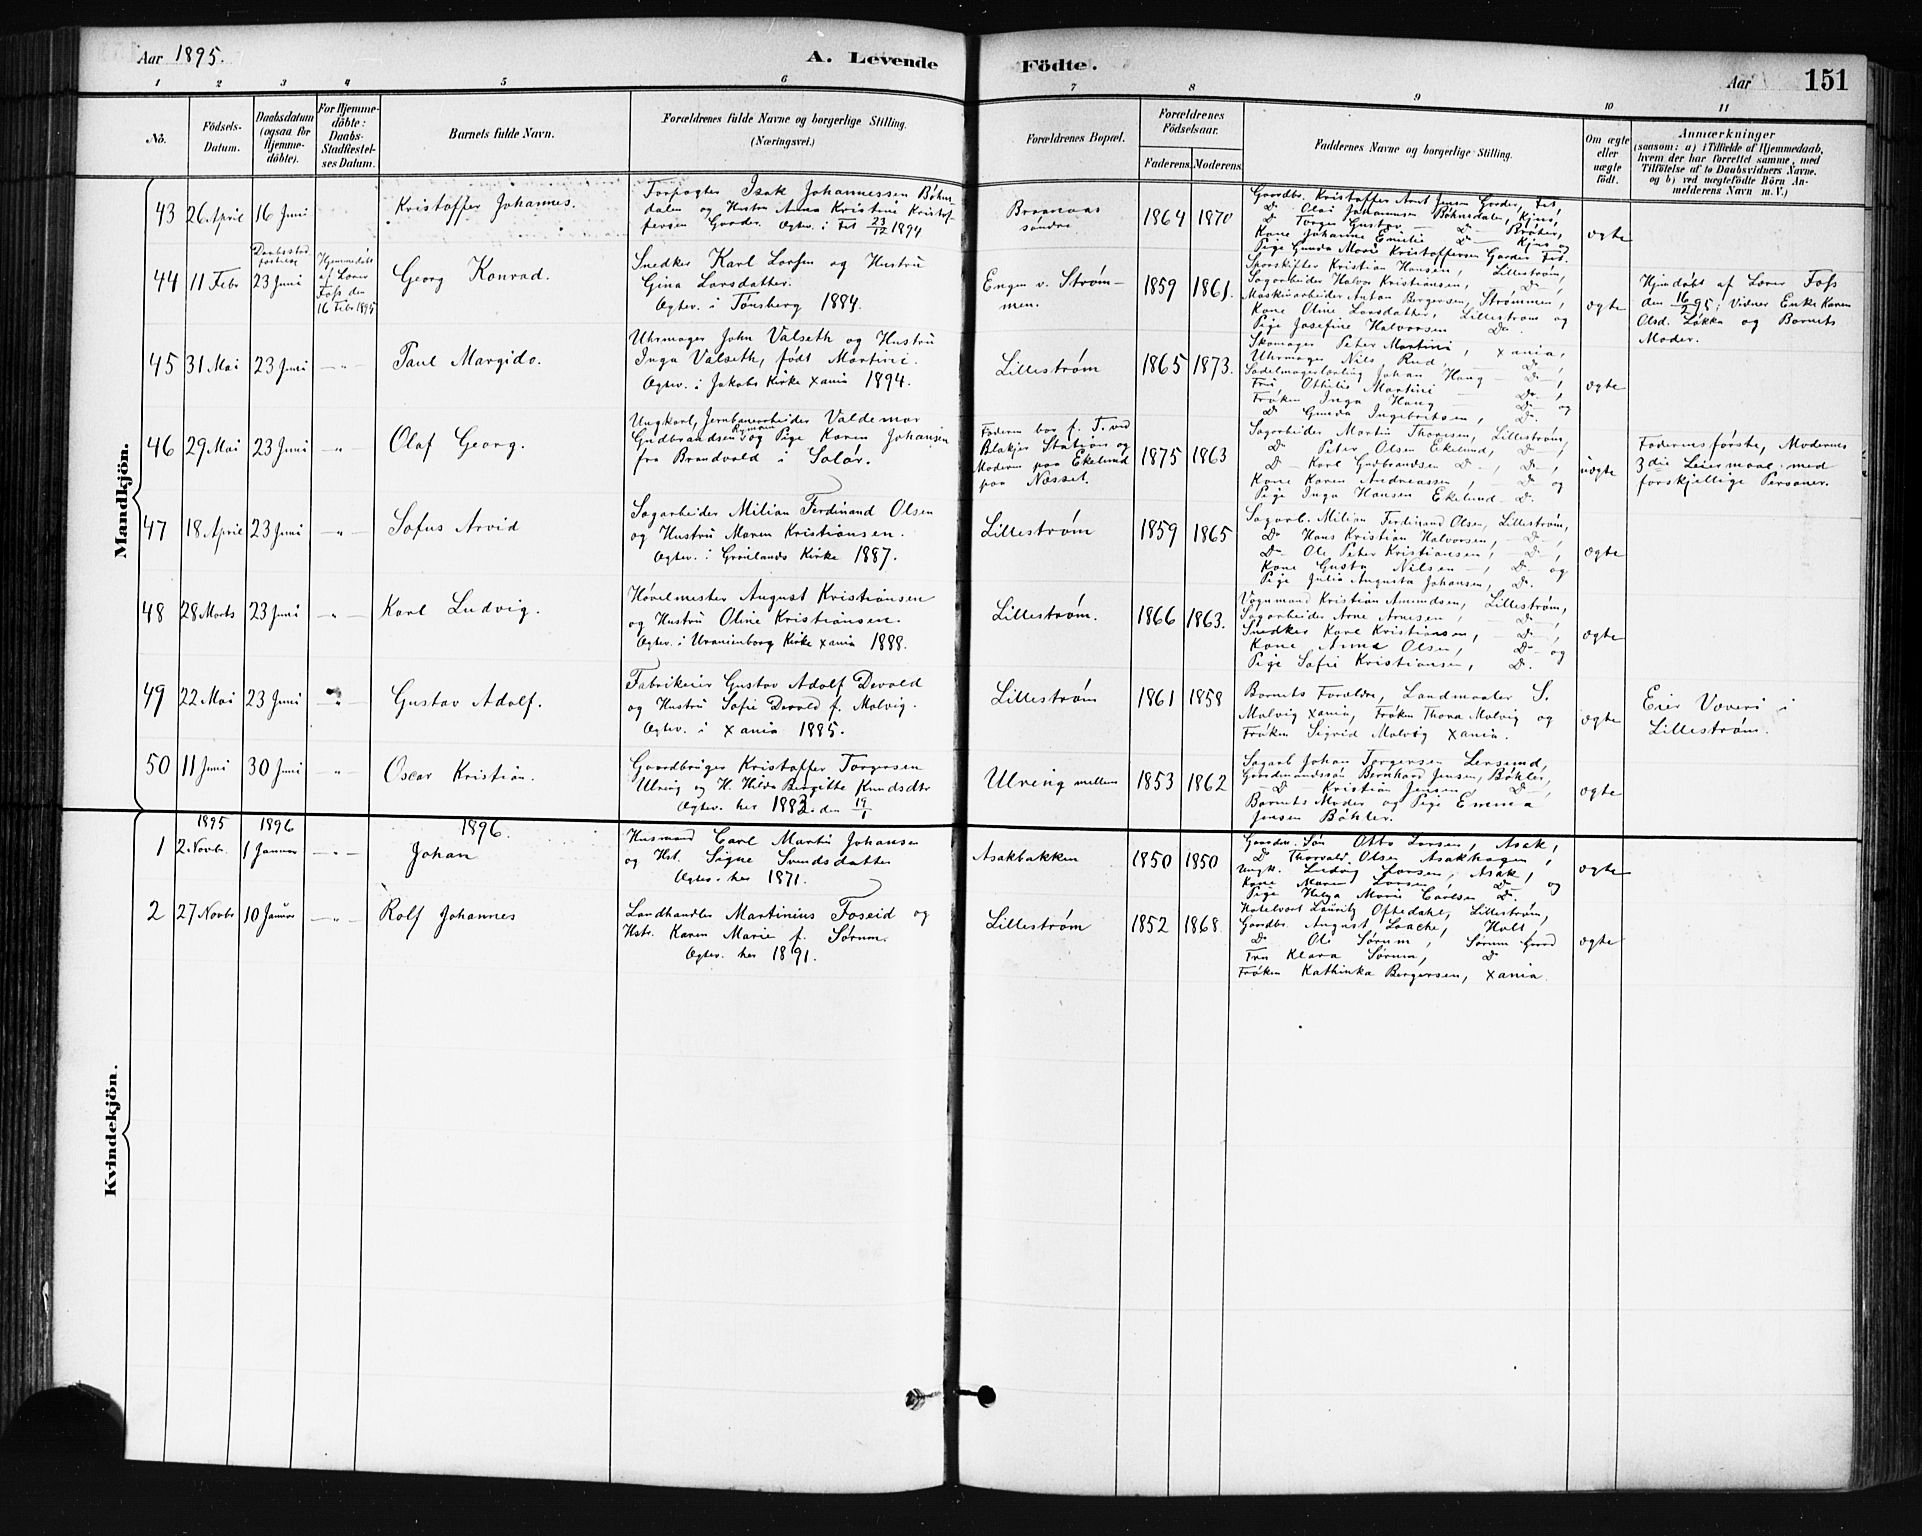 Aar 1895.
A. Levende
Födte.
Aar
151
1 2 3 4 5 6 7 8 9 10 11
No.
Födsels-
Datum.
Daabsdatum
(ogsaa for
Hjemme-
döbte).
For Hjemme-
döbte:
Daabs-
Stadfestel-
ses Datum.
Barnets fulde Navn.
Forældrenes fulde Navne og borgerlige Stilling.
(Næringsvei.)
Forældrenes Bopæl.
Forældrenes
Födselsaar.
Faderens. Moderens.
Faddernes Navne og borgerlige Stilling.
Om ægte
eller
uægte
födt.
Anmærkninger
(saasom: a) i Tilfælde af Hjemmedaab,
hvem der har forrettet samme, med
Tilföielse af to Daabsvidners Navne.
og b) ved uægtefödte Börn An-
melderens Navn m. V.)
Mandkjön.
43 26 April 16 Juni
Kristoffer Johannes.
Forpagter Isak Johannessen Böhns-
dalen og Hustru Anna Kristine Kristof-
fersen Garder. Ægtev. i Fet 23/12 1894
søndre
1864 1870
Gaardbr. Kristoffer Arnt Jensen Garder, Fet,
Do Olai Johannessen Böhnsdalen, Kjus,
Kone Johanne Emilie Do Kjus og
Pige Gunda Marie Kristoffersen Garder Fet.
ægte
44 11 Febr
23 Juni
Hjemmedöbt
af Lærer
Foss den
16 Febr 1895
Georg Konrad.
Snedker Karl Larsen og Hustru
Gina Larsdatter.
Ægtev. i Tønsberg 1884.
Engen v. Strøm-
men.
1859 1861.
Sporskifter Kristian Hansen, Lillestrøm,
Sagarbeider Halvor Kristiansen, Do,
Maskinarbeider Anton Bergersen, Strømmen,
Kone Oline Larsdatter, Lillestrøm og
Pige Josefine Halvorsen Do
ægte
Hjmdöbt af Lærer Foss
den 16/2 95; Vidner Enke Karen
Olsd. Løkka og Barnets
Moder.
45 31 Mai 23 Juni — " —
Paul Margido.
Uhrmager John Valseth og Hustru
Inga Valseth, født Martini.
Ægtev. i Jakobs Kirke Xania 1894.
Lillestrøm
1865 1873.
Skomager Peter Martini, Xania,
Uhrmager Nils Rud — Do —,
Sadelmagerlærling Johan Haug — Do —,
Fru Othilie Martini — Do —,
Frøken Inga Haug — Do og
Do Gunda Ingebritsen, Do.
ægte
46 29 Mai 23 Juni — " —
Olaf Georg.
Ungkarl, Jernbanearbeider Valdemar
Gudbrandsen Ryman og Pige Karen Johansen
fra Brandvold i Solör.
Faderen bor f. T. ved
Blakjer Station og
Moderen paa Ekelund
paa Næsset.
1875 1863
Sagarbeider Martin Thoresen, Lillestrøm,
Do Peter Olsen Ekelund, Do —,
Do — Karl Gudbrandsen Do —, Do —,
Kone Karen Andreassen, — Do — og
Pige Inga Hansen Ekelund Do.
uægte
Faderens første, Moderens
3die Leiermaal med
forskjellige Personer.
47 18 April 23 Juni — " —
Sofus Arvid
Sagarbeider Milian Ferdinand Olsen
og Hustru Maren Kristiansen.
Ægtev. i Grønlands Kirke 1887.
Lillestrøm
1859 1865
Sagarb. Milian Ferdinand Olsen, Lillestrøm,
Do Hans Kristian Halvorsen, — Do —,
Do Ole Peter Kristiansen, — Do —,
Kone Gusta Nilsen —, Do og
Pige Julia Augusta Johansen, Do.
ægte
48 28 Marts 23 Juni — " —
Karl Ludvig.
Høvelmester August Kristiansen
og Hustru Oline Kristiansen.
Ægtev. i Uranienborg Kirke Xania 1888.
Lillestrøm.
1866 1863.
Vognmand Kristian Amundsen, Lillestrøm,
Sagarbeider Arne Arnesen, — Do —,
Snedker Karl Kristiansen, Do —,
Kone Anna Olsen, Do og
Pige Sofie Kristiansen, Do.
ægte
49 22 Mai 23 Juni — " —
Gustav Adolf.
Fabrikeier Gustav Adolf Devold
og Hustru Sofie Devold f. Malvig.
Ægtev. i Xania 1885.
Lillestrøm
1861 1858
Barnets Forældre, Landmaaler S.
Malvig Xania, Frøken Thora Malvig og
Frøken Sigrid Malvig Xania.
ægte
Eier Væveri i
Lillestrøm.
50 11 Juni 30 Juni — " —
Oscar Kristian.
Gaardbruger Kristoffer Torgersen
Ulreng og H. Hilda Bergitte Knudsdtr
Ægtev. her 1883 den 19/1
Ulreng mellem
1853 1862
Sagarb Johan Torgersen Lersund,
Gaardmandssøn Bernhard Jensen, Böhler,
— Do — Kristian Jensen, Do —,
Barnets Moder og Pige Emma
Jensen Böhler.
ægte
Kvindekjön.
1895 1896 1896.
1 2 Novbr. 1 Januar — " —
Johan
Husmand Carl Martin Johansen
og Hst. Signe Svendsdatter
Ægtev. her 1871.
Asakbakken
1850 1850
Gaardm. Søn Otto Larsen, Asak,
Do Thorvald Olsen Asakhagen,
Ungk. Ludvig Larsen, Asak,
Kone Maren Larsen, Do og
Pige Helga Marie Carlsen Do.
ægte
2 27 Novbr 10 Januar — " —
Rolf Johannes
Landhandler Martinius Foseid og
Hstr. Karen Marie f. Sørum.
Ægtev. her 1891.
Lillestrøm
1852 1868.
Hotelvært Lauritz Oftedahl, Lillestrøm,
Gaardbr. August Laache, Holt,
Do Ole Sørum, Sørum Gaard
Fru Klara Sørum, Do
Frøken Kathinka Bergersen, Xania.
ægte